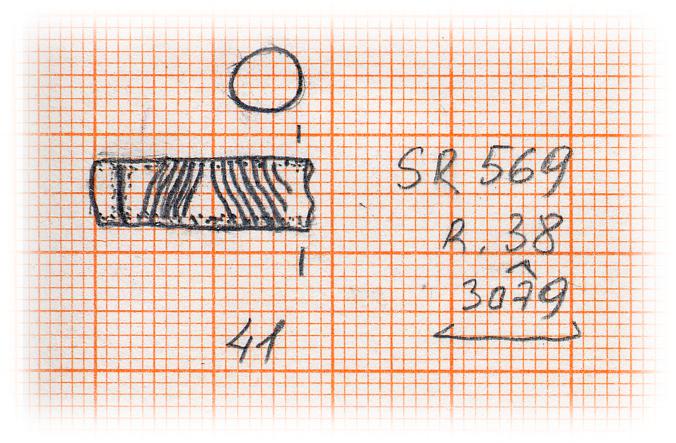 SR 569
R. 38
3079
41